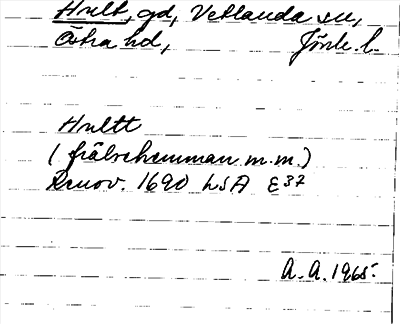 Hult, gd, Vetlanda sn,
Östra hd, Jönk. l.
Hultt
(frälsehemman m.m.)
Renov. 1690 LSA E37
A. A. 1965.